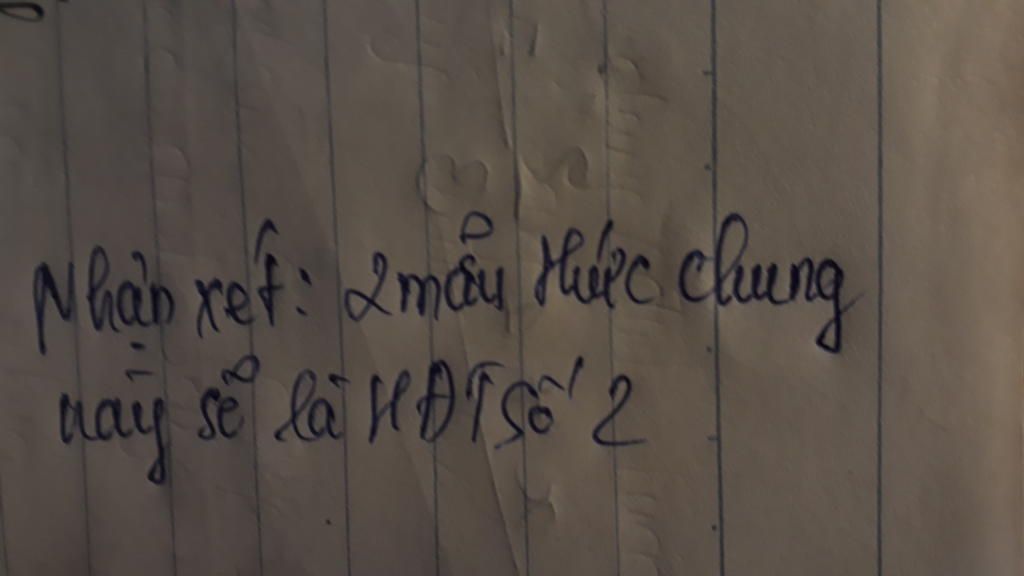 Nhận xét: 2 mẫu thức chung
này sẽ là HĐT số 2